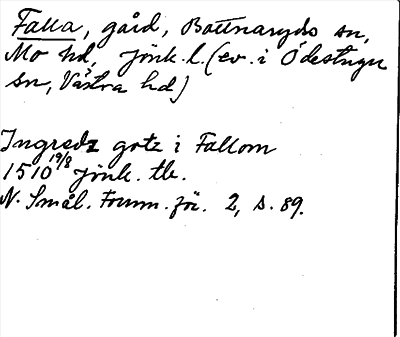 Falla, gård, Bottnaryds sn,
Mo hd, Jönk.l. (ev. i Ödestugu
sn, Västra hd)
Ingredz gotz i Fallom
1510 19/8 Jönk. tb.
N. Smål. Fornm.för. 2, s. 89.